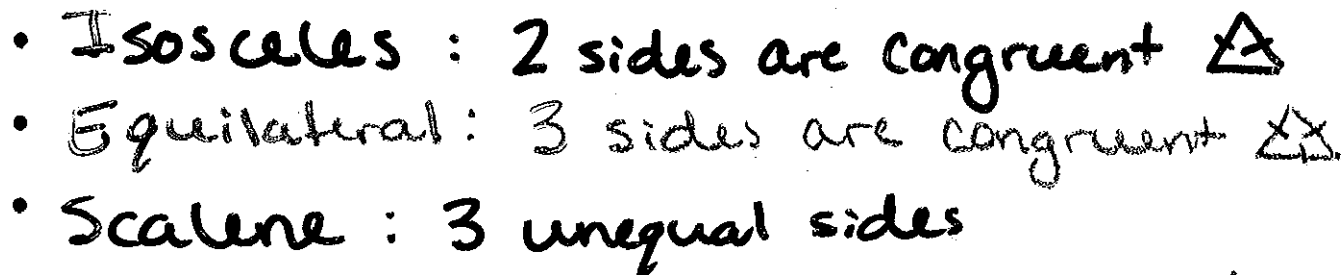 • Isosceles : 2 sides are congruent
• Equilateral : 3 sides are congruent
• Scalene : 3 unequal sides